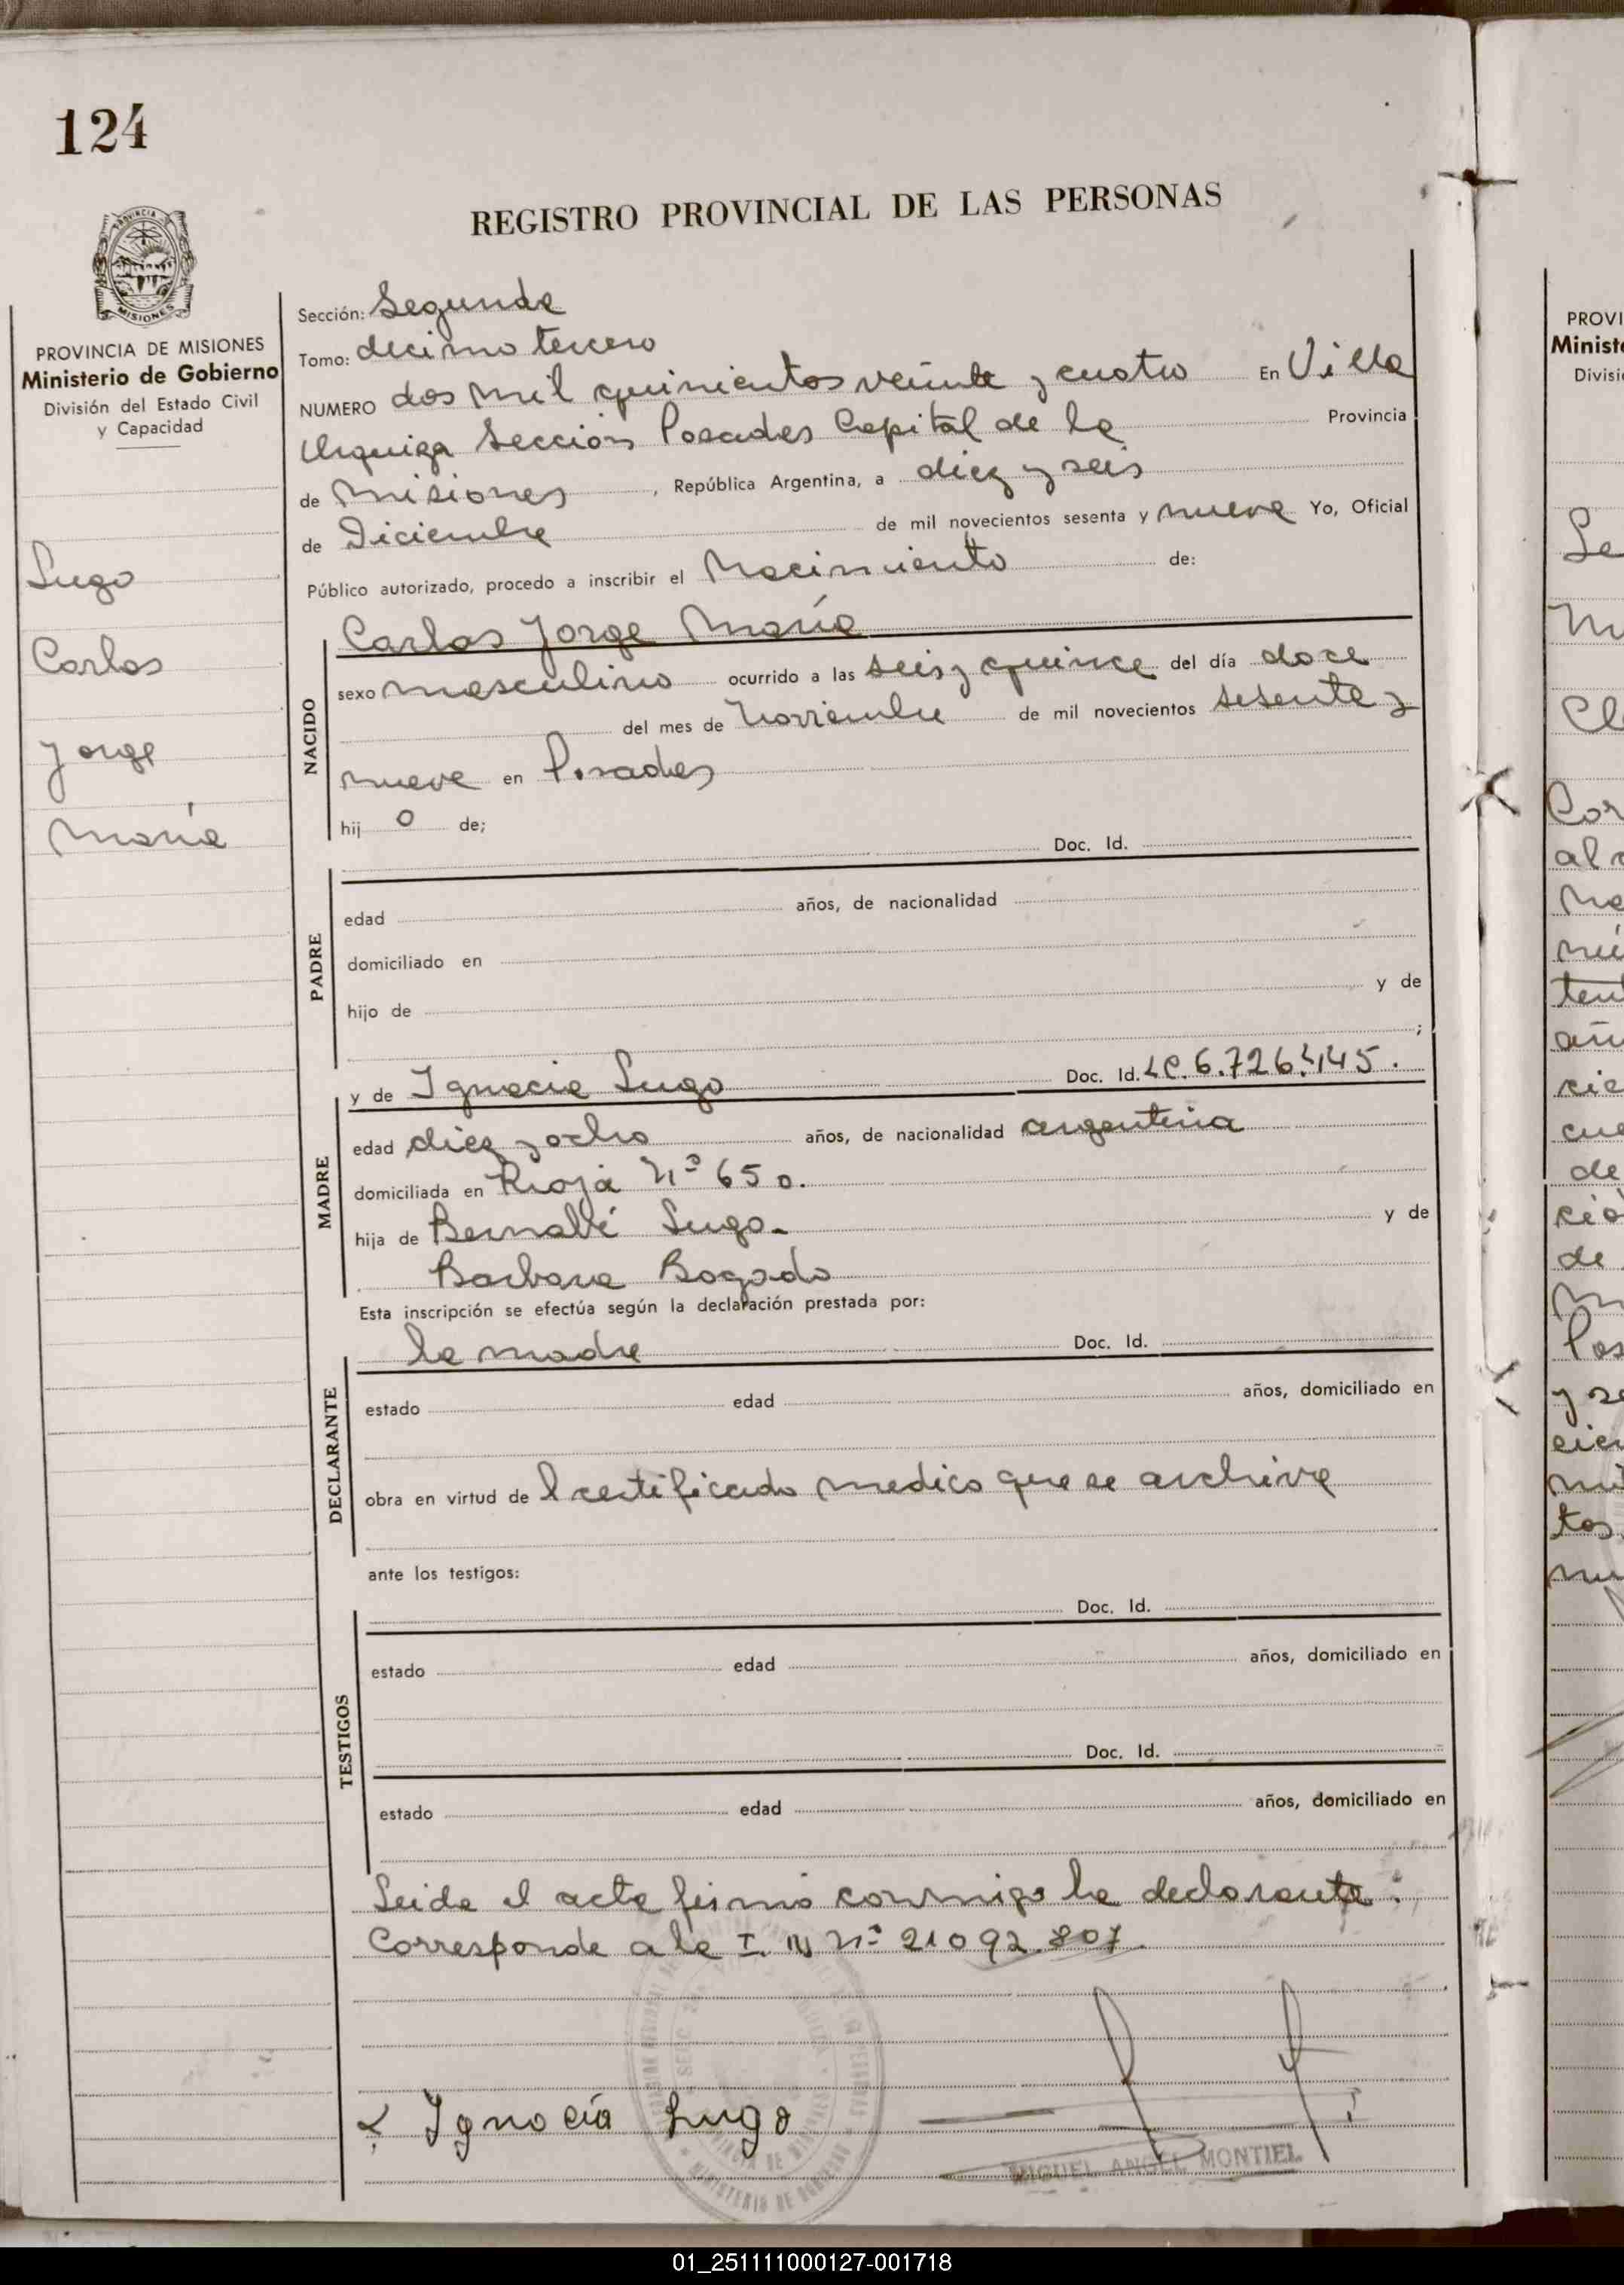 124
REGISTRO PROVINCIAL DE LAS PERSONAS
PROVINCIA
MISIONES
PROVINCIA DE MISIONES
Ministerio de Gobierno
División del Estado Civil
y Capacidad
Lugo
Carlos
Jorge
María
Sección: Segunda
Tomo: decimo tercero
NUMERO dos mil quinientos veinte y cuatro En Villa
Urquiza Sección Posadas Capital de la Provincia
de Misiones, República Argentina, a diez y seis
de Diciembre de mil novecientos sesenta y nueve Yo, Oficial
Público autorizado, procedo a inscribir el Nacimiento de:
NACIDO
Carlos Jorge María
sexo masculino ocurrido a las seis y quince del día doce
del mes de Noviembre de mil novecientos sesenta y
nueve en Posadas
hij o de;
Doc. Id.
PADRE
edad años, de nacionalidad
domiciliado en
hijo de y de
;
MADRE
y de Ignacia Lugo Doc. Id. LC. 6.726.145.
edad diez y ocho años, de nacionalidad argentina
domiciliada en Rioja Nº 650.
hija de Bernabé Lugo- y de
Barbara Bogado
Esta inscripción se efectúa según la declaración prestada por:
DECLARANTE
la madre Doc. Id.
estado edad años, domiciliado en
obra en virtud de l certificado medico que se archiva
ante los testigos:
TESTIGOS
Doc. Id.
estado edad años, domiciliado en
Doc. Id.
estado edad años, domiciliado en
Leida el acta firmó conmigo la declarante:
Corresponde a la I. N Nº 21092.807
Ignacia Lugo
MIGUEL ANGEL MONTIEL
MINISTERIO DE GOBIERNO
PROVI
Minist
Divisi
01_251111000127-001718